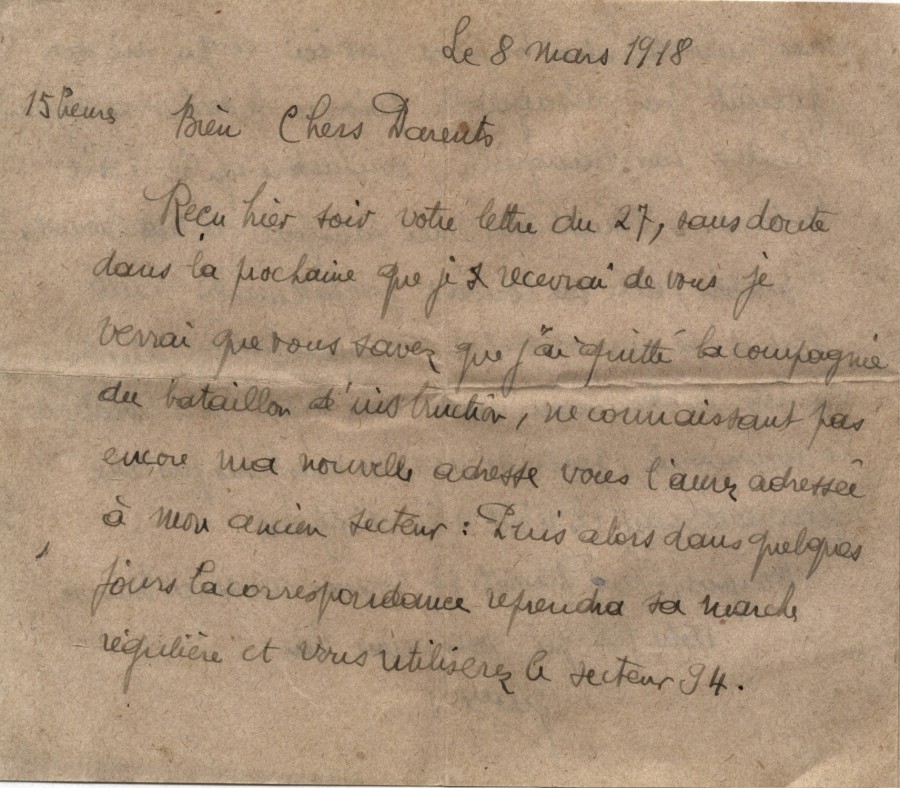 Le 8 mars 1918
15 heures Bien Chers Parents
Reçu hier soir votre lettre du 27, sans doute
dans la prochaine que je recevrai de vous je
verrai que vous savez que j'ai quitté la compagnie
du bataillon d'instruction, ne connaissant pas
encore ma nouvelle adresse vous l'aurez adressée
à mon ancien secteur : Puis alors dans quelques
jours la correspondance reprendra sa marche
régulière et vous utiliserez le secteur 94.